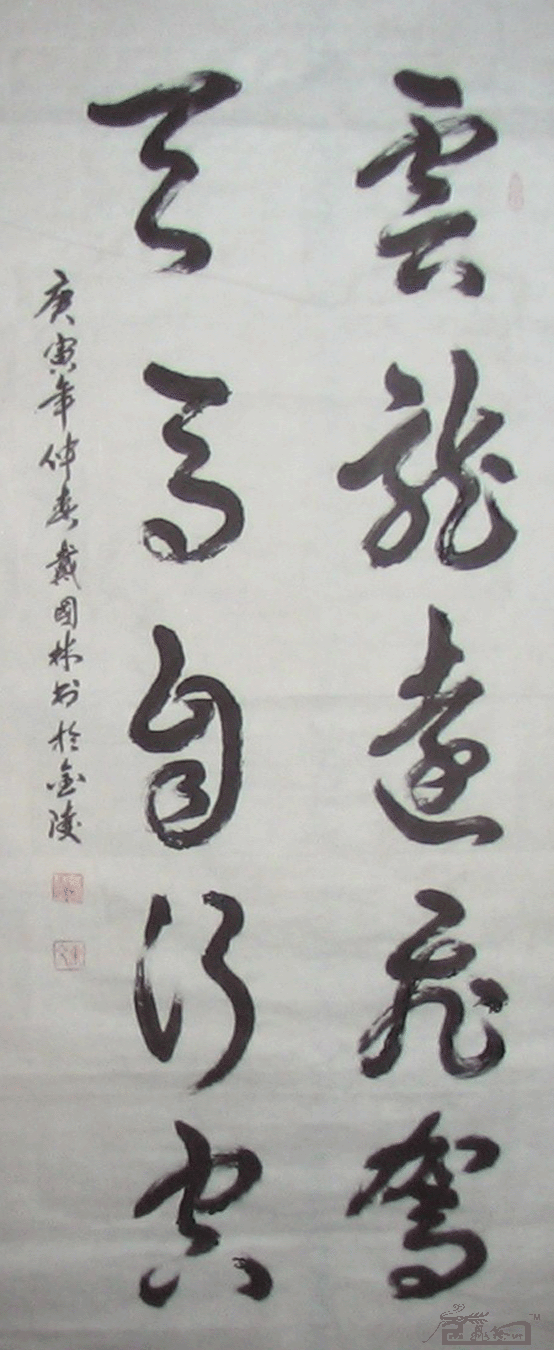 雲龍遠飛駕
天馬自行空
庚寅年仲春戴國林書於金陵